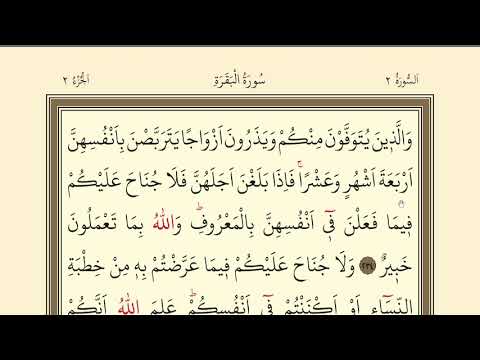 اَلسُّورَةُ ٢ سُورَةُ الْبَقَرَةِ اَلْجُزْءُ ٢
وَالَّذ۪ينَ يُتَوَفَّوْنَ مِنْكُمْ وَيَذَرُونَ اَزْوَاجًا يَتَرَبَّصْنَ بِاَنْفُسِهِنَّ
اَرْبَعَةَ اَشْهُرٍ وَعَشْرًاۚ فَاِذَا بَلَغْنَ اَجَلَهُنَّ فَلَا جُنَاحَ عَلَيْكُمْ
ف۪يمَا فَعَلْنَ ف۪ٓي اَنْفُسِهِنَّ بِالْمَعْرُوفِۜ وَاللّٰهُ بِمَا تَعْمَلُونَ
خَب۪يرٌ ٢٣٤ وَلَا جُنَاحَ عَلَيْكُمْ ف۪يمَا عَرَّضْتُمْ بِه۪ مِنْ خِطْبَةِ
النِّسَٓاءِ اَوْ اَكْنَنْتُمْ ف۪ٓي اَنْفُسِكُمْۜ عَلِمَ اللّٰهُ اَنَّكُمْ